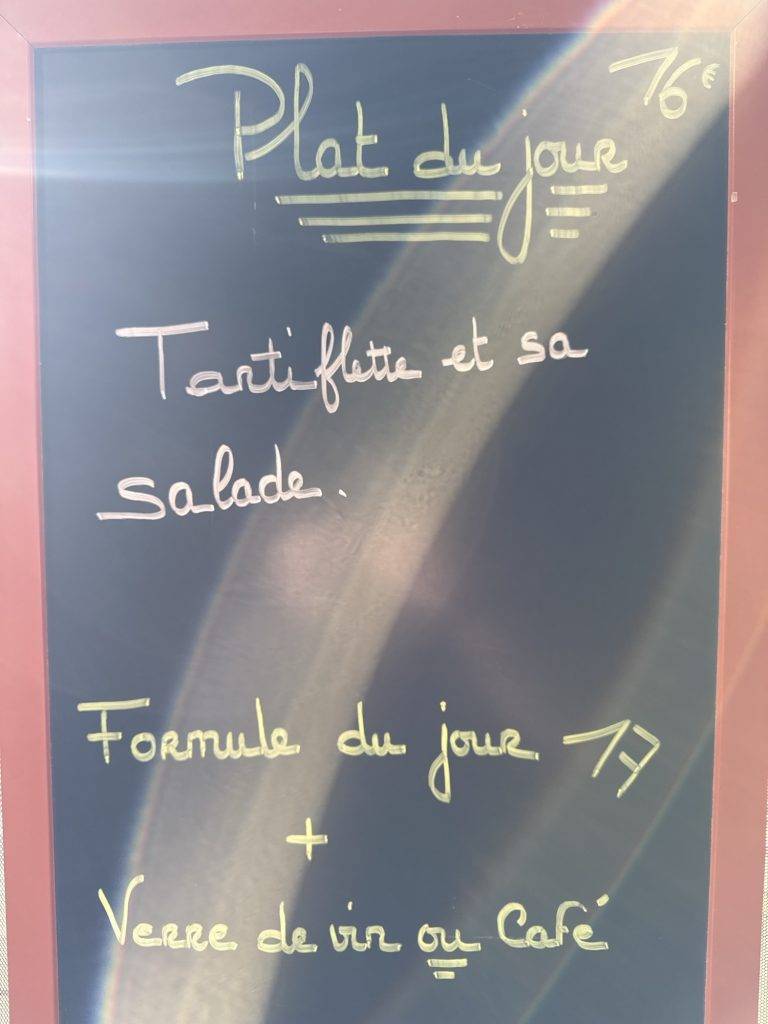 Plat du jour 16€
Tartiflette et sa
salade.
Formule du jour 17
+
Verre de vin ou Café